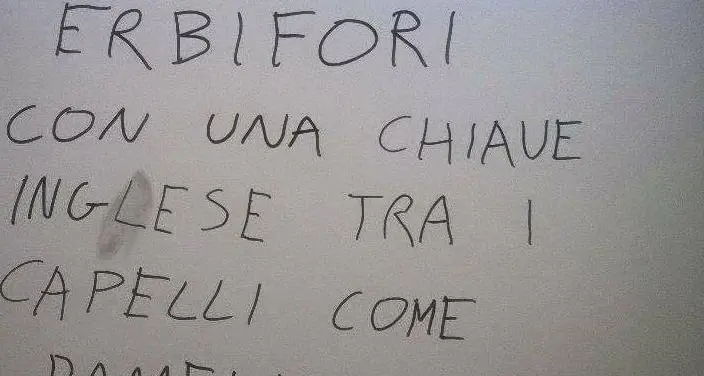 ERBIFORI
CON UNA CHIAVE
INGLESE TRA I
CAPELLI COME